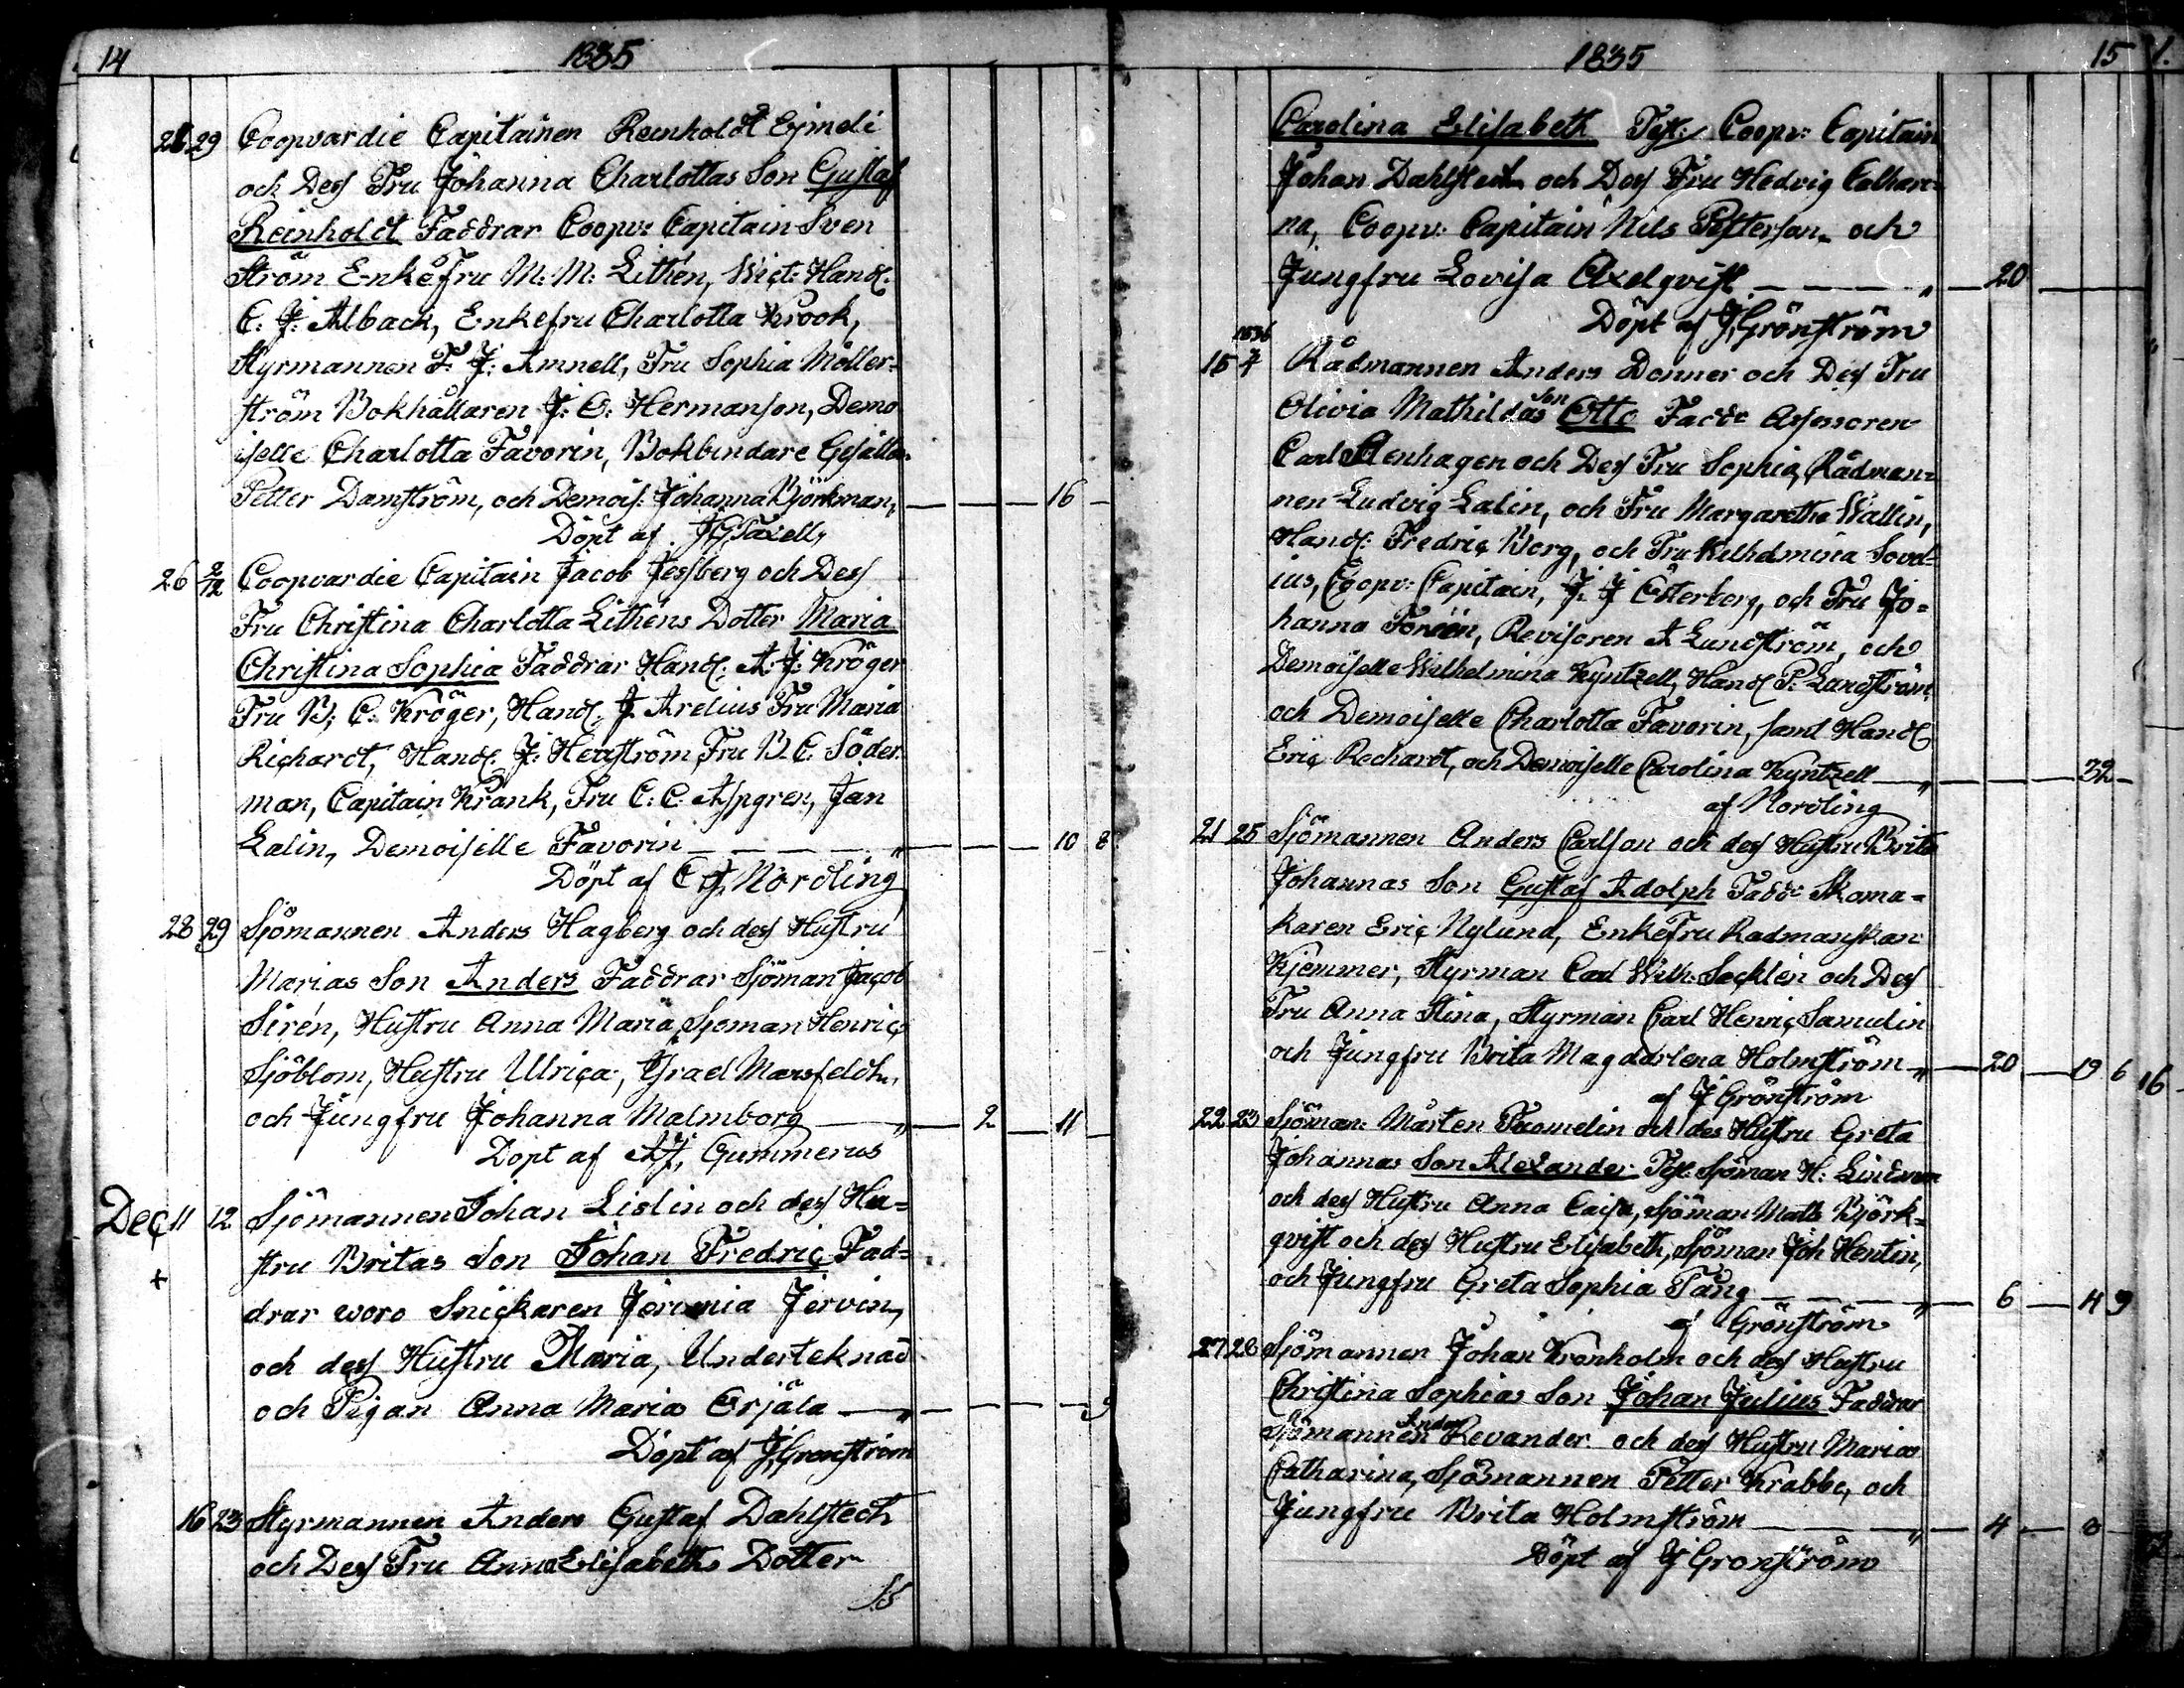 14 1835
26 29 Coopvardie Capitainen Reinholdt Ejmeli
och Dess Fru Johanna Charlottas Son Gustaf
Reinholdt Faddrar Coopv: Capitain Sven
ström Enkefru M: M: Lithén, Vict: Handl:
C: J: Alback, Enkefru Charlotta Krook,
Styrmannen F. J: Amnell, Fru Sophia Möller-
ström Bokhållaren J: O: Hermanson, Demo
iselle Charlotta Favorin, Bokbindare Gesällen
Petter Damström, och Demois: Johanna Björkman, 16
Döpt af JGTaxell,
26 2/12 Coopvardie Capitain Jacob Jessberg och Dess
Fru Christina Charlotta Lithéns Dotter Maria
Christina Sophia Faddrar Handl: A: J: Kröger
Fru B: C: Kröger, Handl: J. Arelius Fru Maria
Richardt, Handl: J: Hedström, Fru B. C. Söder-
man, Capitain Krank, Fru C: C: Aspgren, Jan
Lalin, Demoiselle Favorin " 10 8
Döpt af C J, Nordling
28 29 Sjömannen Anders Hagberg och dess Hustru
Marias Son Anders Faddrar Sjöman Jacob
Sirén, Hustru Anna Maria, Sjöman Henric
Sjöblom, Hustru Ulrica, Israel Marsfeldt,
och Jungfru Johanna Malmborg " 2 11
Döpt af AJ, Gummerus
Dec 11 12 Sjömannen Johan Lislin och dess Hu=
stru Britas Son Johan Fredric Fad=
+
drar woro Snickaren Jeremia Jervin,
och dess Hustru Maria, Underteknad
och Pigan Anna Maria Orjala " 9
Döpt af J, Grönström
16 23 Styrmannen Anders Gustaf Dahlstedt
och Dess Fru Anna Elisabeths Dotter
15
1835 15
Carolina Elisabeth Test: Coopv: Capitain
Johan Dahlstedt och Dess Fru Hedvig Cathari=
na, Coopv: Capitain Nils Petterson och
Jungfru Lovisa Axelqvist " 20
Döpt af J, Grönström
1836
15 Rådmannen Anders Donner och Dess Fru
Olivia Mathildas Son Otto Fadd: Assessoren
Carl Stenhagen och Dess Fru Sophia, Rådman=
nen Ludvig Lalin, och Fru Margaretha Wallin,
Handl: Fredric Borg, och Fru Wilhelmina Soveli=
us, Coopv: Capitain, J. J Österberg, och Fru Jo=
hanna Forséén, Revisoren A Lundström, och
Demoiselle Wilhelmina Kyntzell, Handl P: Lundström,
och Demoiselle Charlotta Favorin, samt Handl
Eric Rechardt, och Demoiselle Carolina Kyntzell " 32
af Nordling
21 25 Sjömannen Anders Carlson och dess Hustru Brita
Johannas Son Gustaf Adolph Fadd: Skoma=
karen Eric Nylund, Enkefru Radmanskan
Kjemmer, Styrman Carl Wilh: Secklén och Dess
Fru Anna Stina, Styrman Carl Henric Samulin
och Jungfru Brita Magdalena Holmström " 20 19 6
af J Grönström
22 23 Sjöman: Mårten Tuomelin och des Hustru Greta
Johannas Son Alexander Test: Sjöman H: Lindman
och dess Hustru Anna Caisa, Sjöman Matts Björk=
qvist och dess Hustru Elisabeth, Sjöman Joh Hentin,
och Jungfru Greta Sophia Tång " 6 4 9
af Grönström
27 28 Sjömannen Johan Krönholm och dess Hustru
Christina Sophias Son Johan Julius Faddrar
Sjömannen Anders Revander och dess Hustru Maria
Catharina, Sjömannen Petter Krabbe, och
Jungfru Brita Holmström " 4 8
Döpt af J Gronström
16